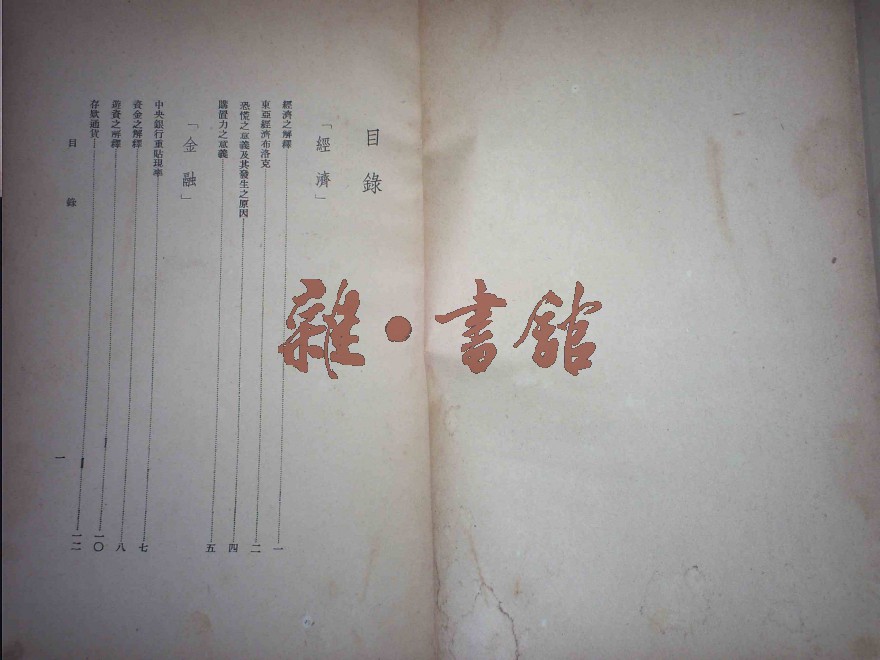 目錄
「經濟」
經濟之解釋⋯⋯一
東亞經濟布洛克⋯⋯二
恐慌之意義及其發生之原因⋯⋯四
購置力之意義⋯⋯五
「金融」
中央銀行重貼現率⋯⋯七
資金之解釋⋯⋯八
遊資之解釋⋯⋯一〇
存款通貨⋯⋯一二
目錄
一
雜·書館